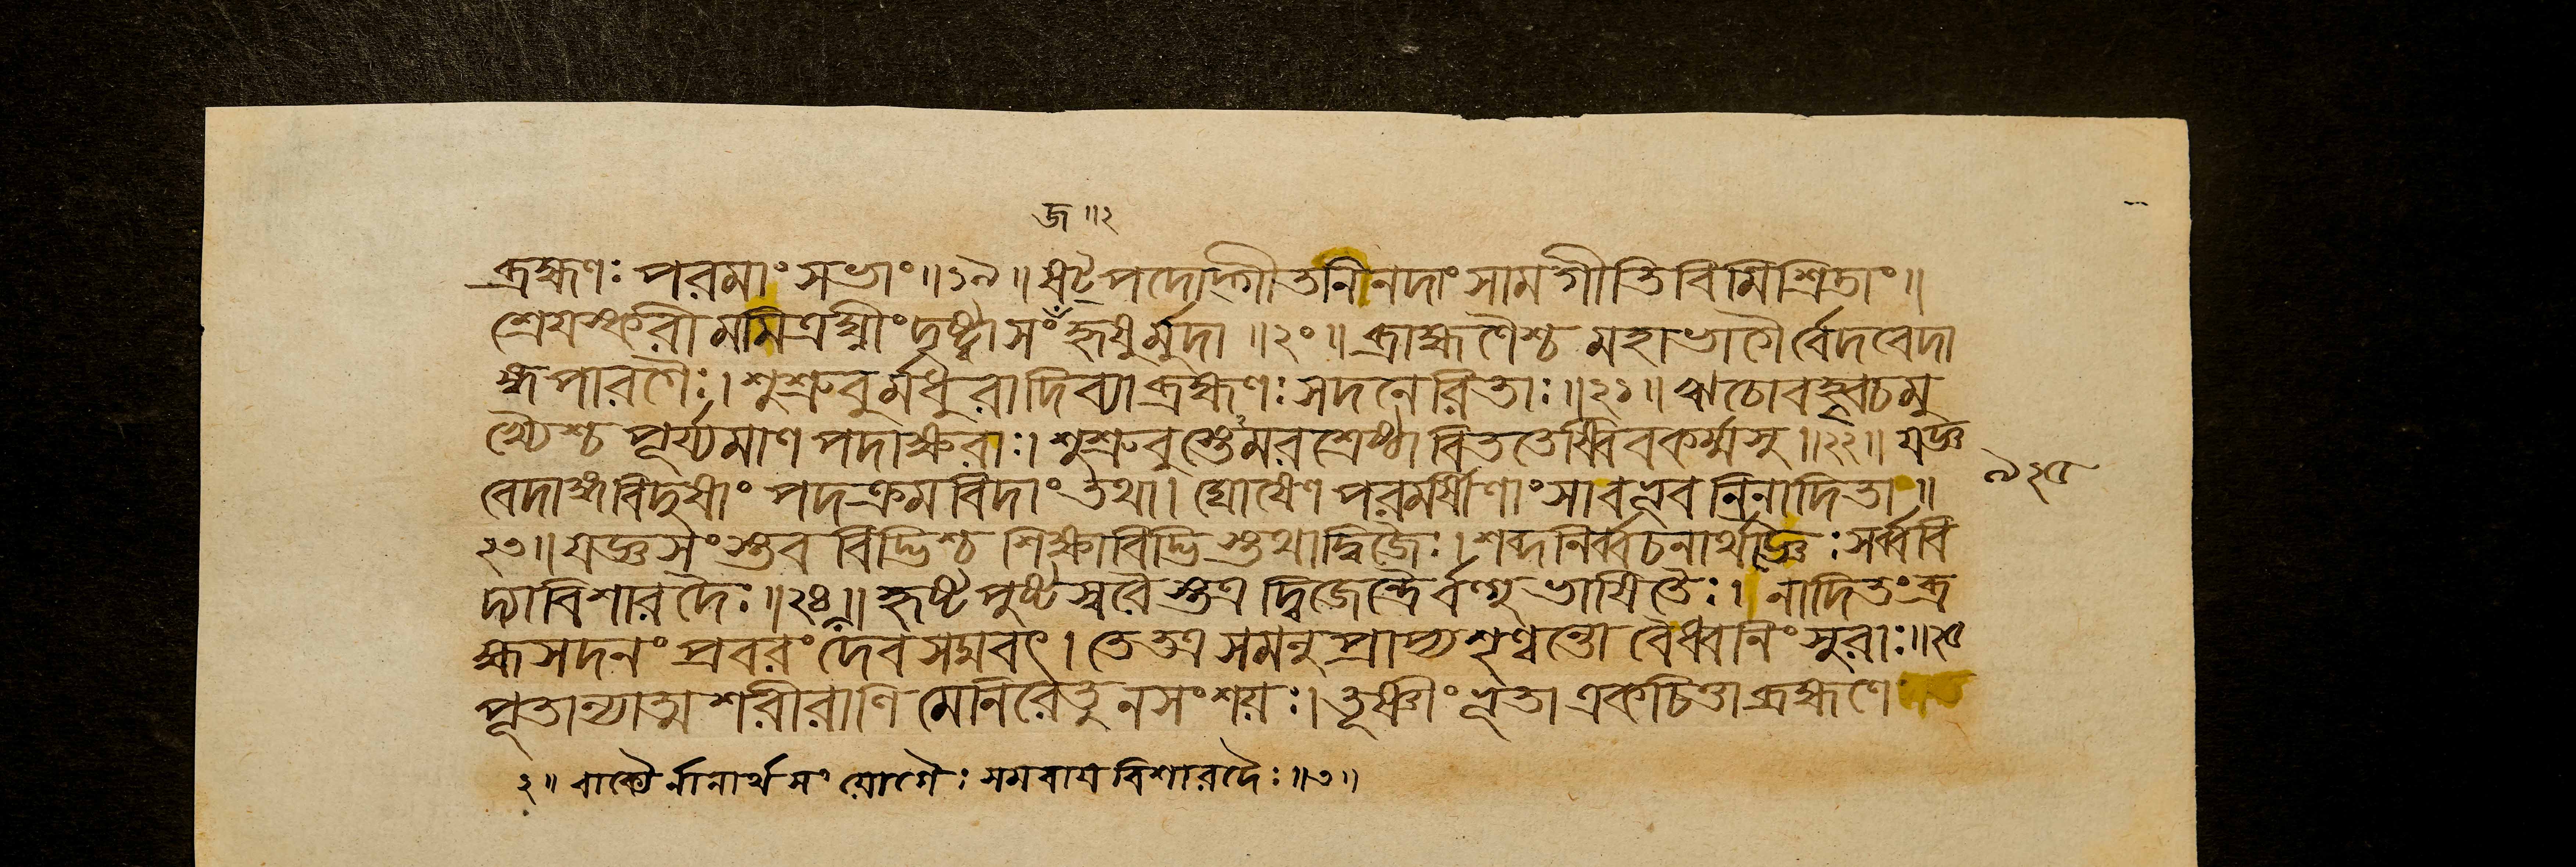 জ ॥ ২
ব্রহ্মণঃ পরমাং সভাং ॥ ১৯ ॥ ষট্পদোদ্গীতনিনদাং সামগীতিবিমিশ্রিতাং ॥
শ্রেয়স্করীমমিত্রঘ্নীং দৃষ্ট্বা সংহৃষুর্মুদা ॥ ২০ ॥ ব্রাহ্মণৈশ্চ মহাভাগৈর্বেদবেদা
ঙ্গপারগৈঃ । শুশ্রুবুর্মধুরা দিব্যা ব্রহ্মণঃ সদনেরিতাঃ ॥ ২১ ॥ ঋচো বহ্বৃচমু
খ্যৈশ্চ পূর্য্যমাণপদাক্ষরাঃ । শুশ্রুবুস্তেমরশ্রেষ্ঠা বিততেষ্বিবকর্ম্মসু ॥ ২২ ॥ যজ্ঞ
বেদাঙ্গবিদুষাং পদক্রমবিদাং তথা । ঘোষেণ পরমর্ষীণাং সা বভূব নিনাদিতা ॥
২৩ ॥ যজ্ঞসংস্তববিদ্ভিশ্চ শিক্ষাবিদ্ভিস্তথা দ্বিজৈঃ । শব্দনির্ব্বচনার্থজ্ঞৈঃ সর্ব্ববি
দ্যাবিশারদৈঃ ॥ ২৪ ॥ হৃষ্টপুষ্টস্বরৈস্তত্র দ্বিজেন্দ্রৈর্বল্গুভাষিতৈঃ । নাদিতং ব্র
হ্মসদনং প্রবরং দেবসদ্মবৎ । তে তত্র সমনুপ্রাপ্য শৃণ্বন্তো বৈ ধ্বনিং সুরাঃ ॥ ২৫
পূতান্যাত্মশরীরাণি মেনিরে তু ন সংশয়ঃ । তূষ্ণীং ভূতা একচিত্তা ব্রহ্মণে
৯২৫
২ ॥ বাক্যৈর্নানার্থসংযোগৈঃ সমবায়বিশারদৈঃ ॥ ৩ ॥